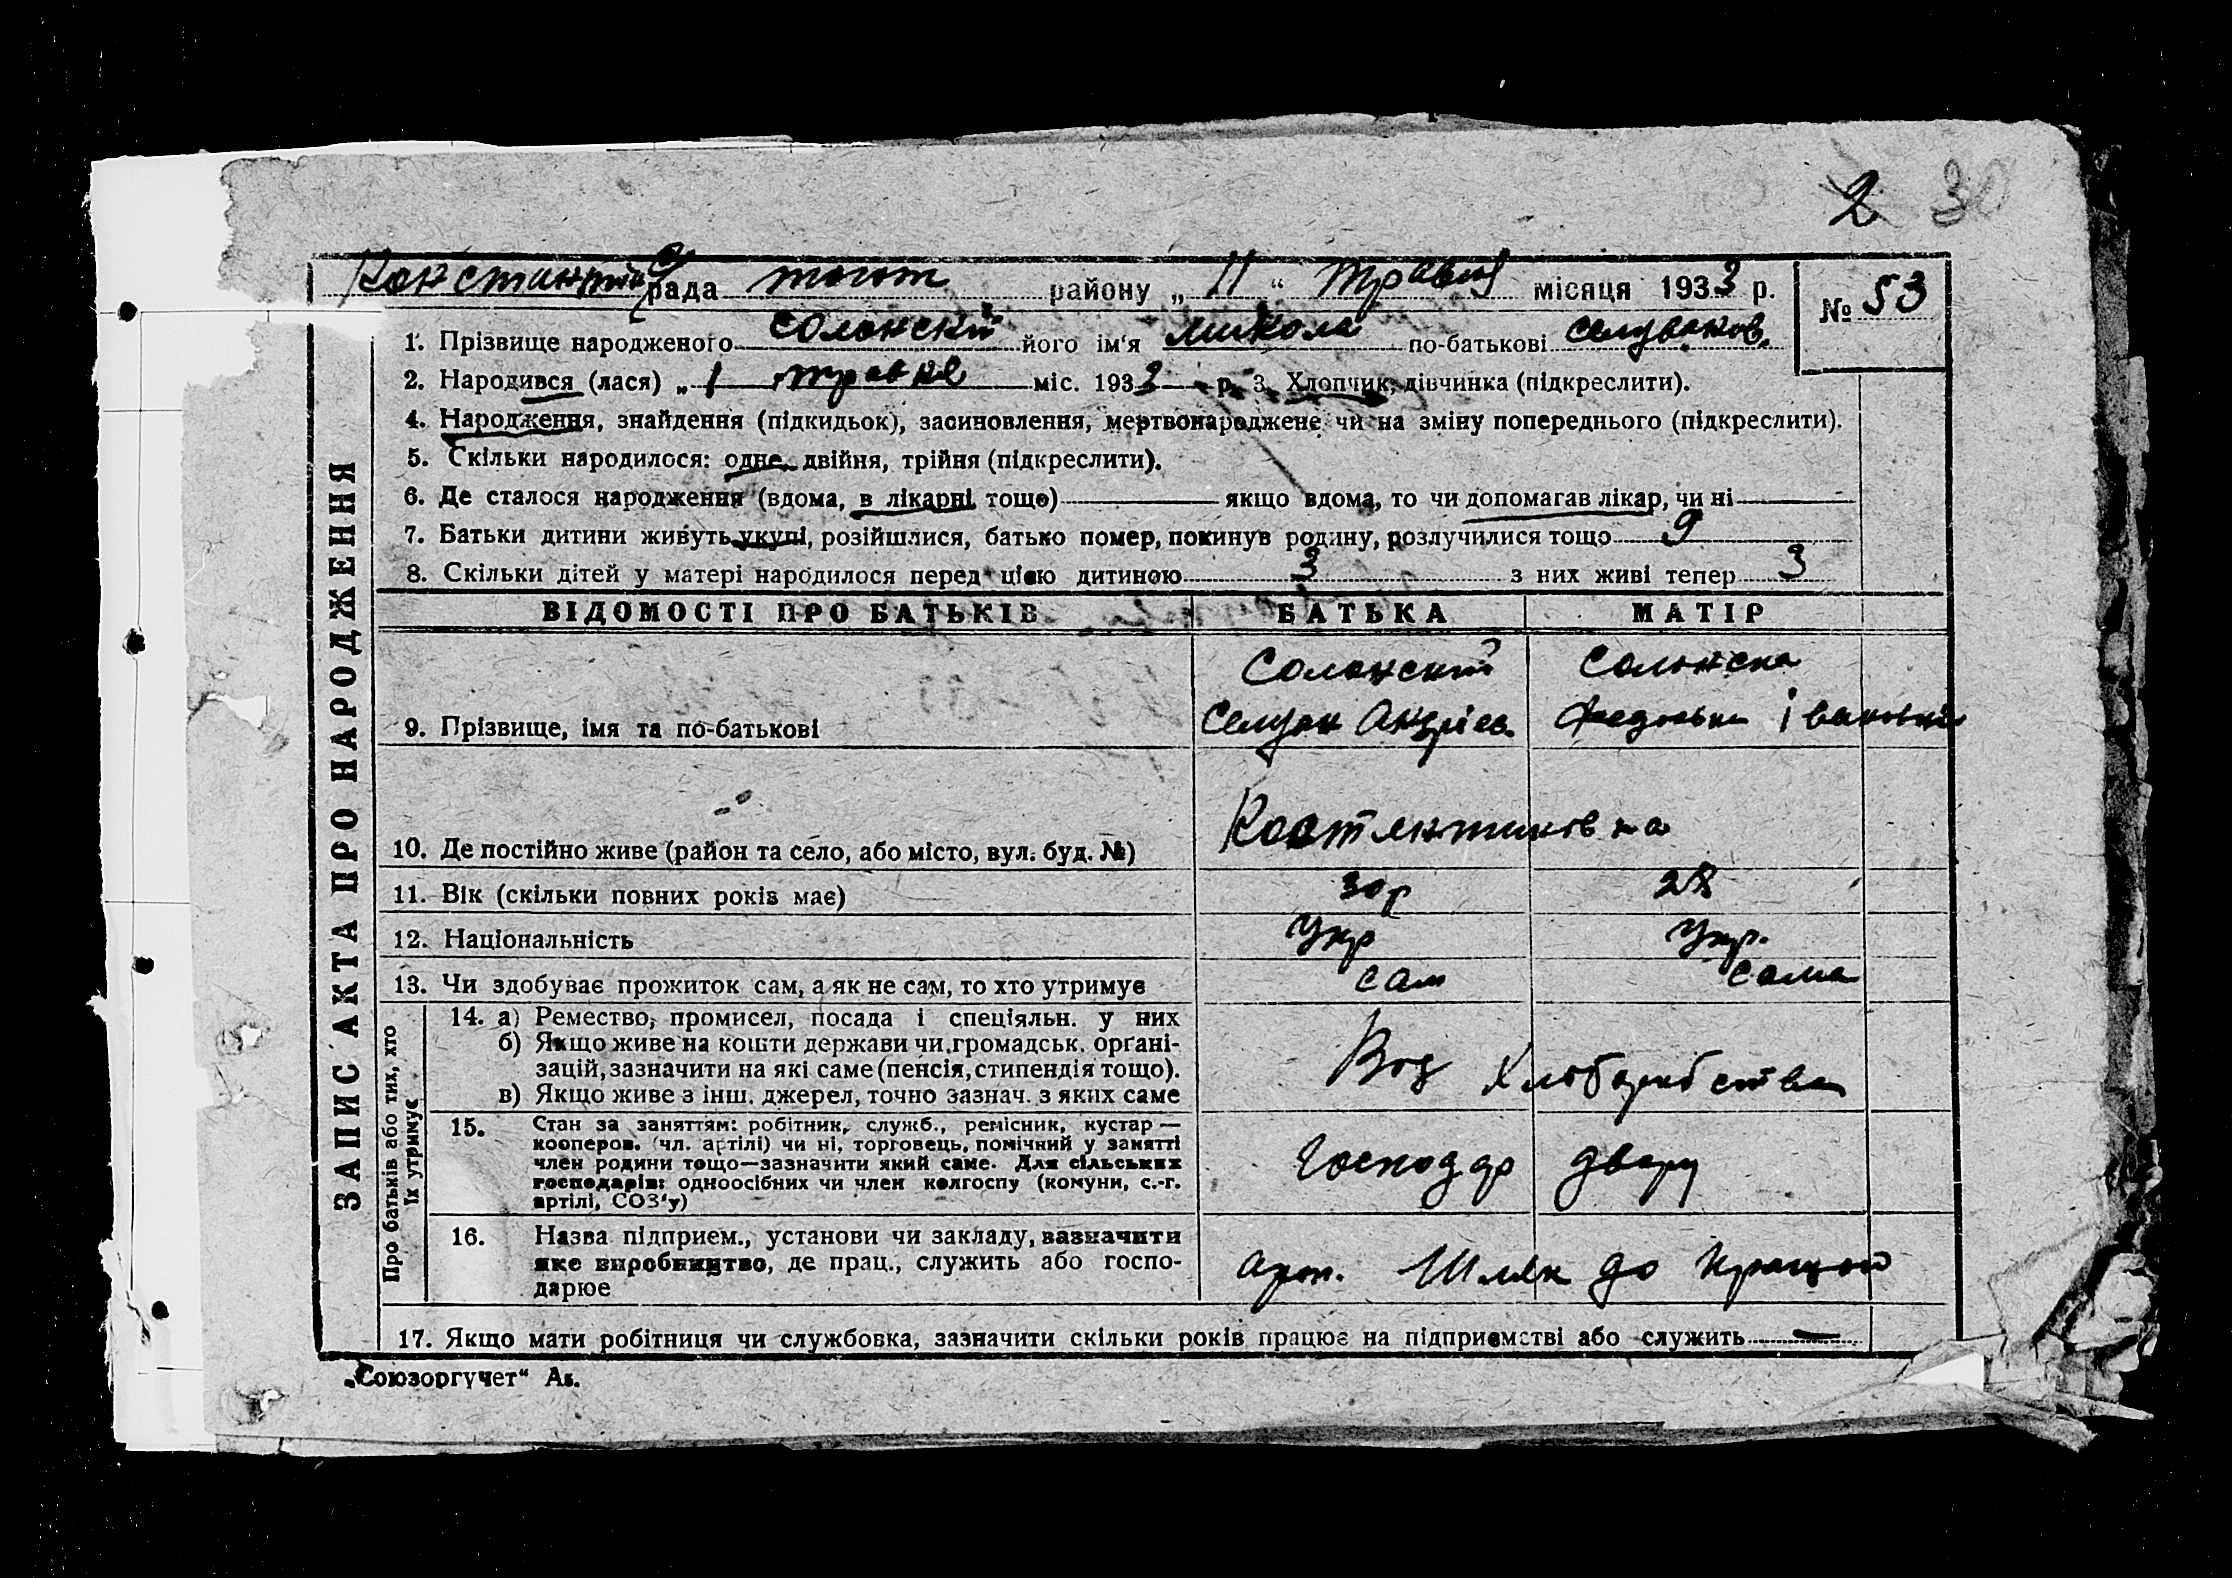 2 30
рада района „ 11 “ травня місяця 1933 р. № 53
1. Прізвище народженого Солонский його ім'я Микола по-батькові
2. Народився (лася) „ 1 травня міс. 1933 р. 3. Хлопчик, дівчинка (підкреслити).
4. Народження, знайдення (підкидьок), засиновлення, мертвонароджене чи на зміну попереднього (підкреслити).
5. Скільки народилося: одне, двійня, трійня (підкреслити).
6. Де сталося народження (вдома, в лікарні тощо) якщо вдома, то чи допомагав лікар, чи ні
7. Батьки дитини живуть укупі, розійшлися, батько помер, покинув родину, розлучилися тощо 9
8. Скільки дітей у матері народилося перед цією дитиною 3 з них живі тепер 3
ВІДОМОСТІ ПРО БАТЬКІВ БАТЬКА МАТІР
Солонский Солонска
9. Прізвище, імя та по-батькові Андріев. Івановна
10. Де постійно живе (район та село, або місто, вул. буд. №) Костянтиновка
11. Вік (скільки повних років має) 30 р 28
12. Національність Укр Укр.
13. Чи здобуває прожиток сам, а як не сам, то хто утримує сам сама
14. а) Ремество, промисел, посада і спеціяльн. у них
б) Якщо живе на кошти держави чи громадськ. органі-
зацій, зазначити на які саме (пенсія, стипендія тощо).
в) Якщо живе з інш. джерел, точно зазнач. з яких саме
15. Стан за заняттям: робітник, служб., ремісник, кустар —
кооперов. (чл. артілі) чи ні, торговець, помічний у занятті
член родини тощо—зазначити який саме. Для сільських
господарів: одноосібних чи член колгоспу (комуни, с.-г.
артілі, СОЗ'у)
двору
16. Назва підприєм., установи чи закладу, зазначити
яке виробництво, де прац., служить або госпо-
дарює
арт. Шлях до кращого
17. Якщо мати робітниця чи службовка, зазначити скільки років працює на підприємстві або служить —
„Союзоргучет“
ЗАПИС АКТА ПРО НАРОДЖЕННЯ
Про батьків або тих, хто
їх утримує